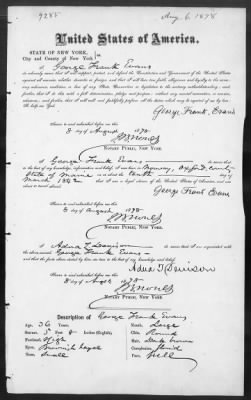 9285
Aug 6, 1878
United States of America.
STATE OF NEW YORK,
City and County of New York } ss.
I, George Frank Evans
do solemnly swear that I will support, protect and defend the Constitution and Government of the United States
against all enemies, whether domestic or foreign; and that I will bear true faith, allegiance and loyalty to the same,
any ordinance, resolution or law of any State Convention or Legislature to the contrary notwithstanding; and
further, that I do this with a full determination, pledge and purpose, without any mental reservation or evasion
whatsoever; and further, that I will well and faithfully perform all the duties which may be required of me by law.
So help me God.
George Frank Evans
Sworn to and subscribed before me this
3 day of August 1878
NOTARY PUBLIC, NEW YORK.
I, George Frank Evans do swear that I was
born in Norway, Oxford County
State of Maine on or about the tenth day of
March 1842
George Frank Evans
Sworn to and subscribed before me this
3 day of August 1878
NOTARY PUBLIC, NEW YORK.
I, Adna T. Denison do swear that I am acquainted with the
above named George Frank Evans
and that the facts above stated by him are true to the best of my knowledge and belief.
Adna T. Denison
Sworn to and subscribed before me this
3 day of August 1878
NOTARY PUBLIC, NEW YORK.
Description of George Frank Evans
Age: 36 Years.
Stature: 5 Feet 8 Inches (English).
Forehead: High
Eyes: Brownish hazel
Nose: Small
Mouth: Large
Chin: Round
Hair: Dark brown
Complexion: Florid
Face: Full